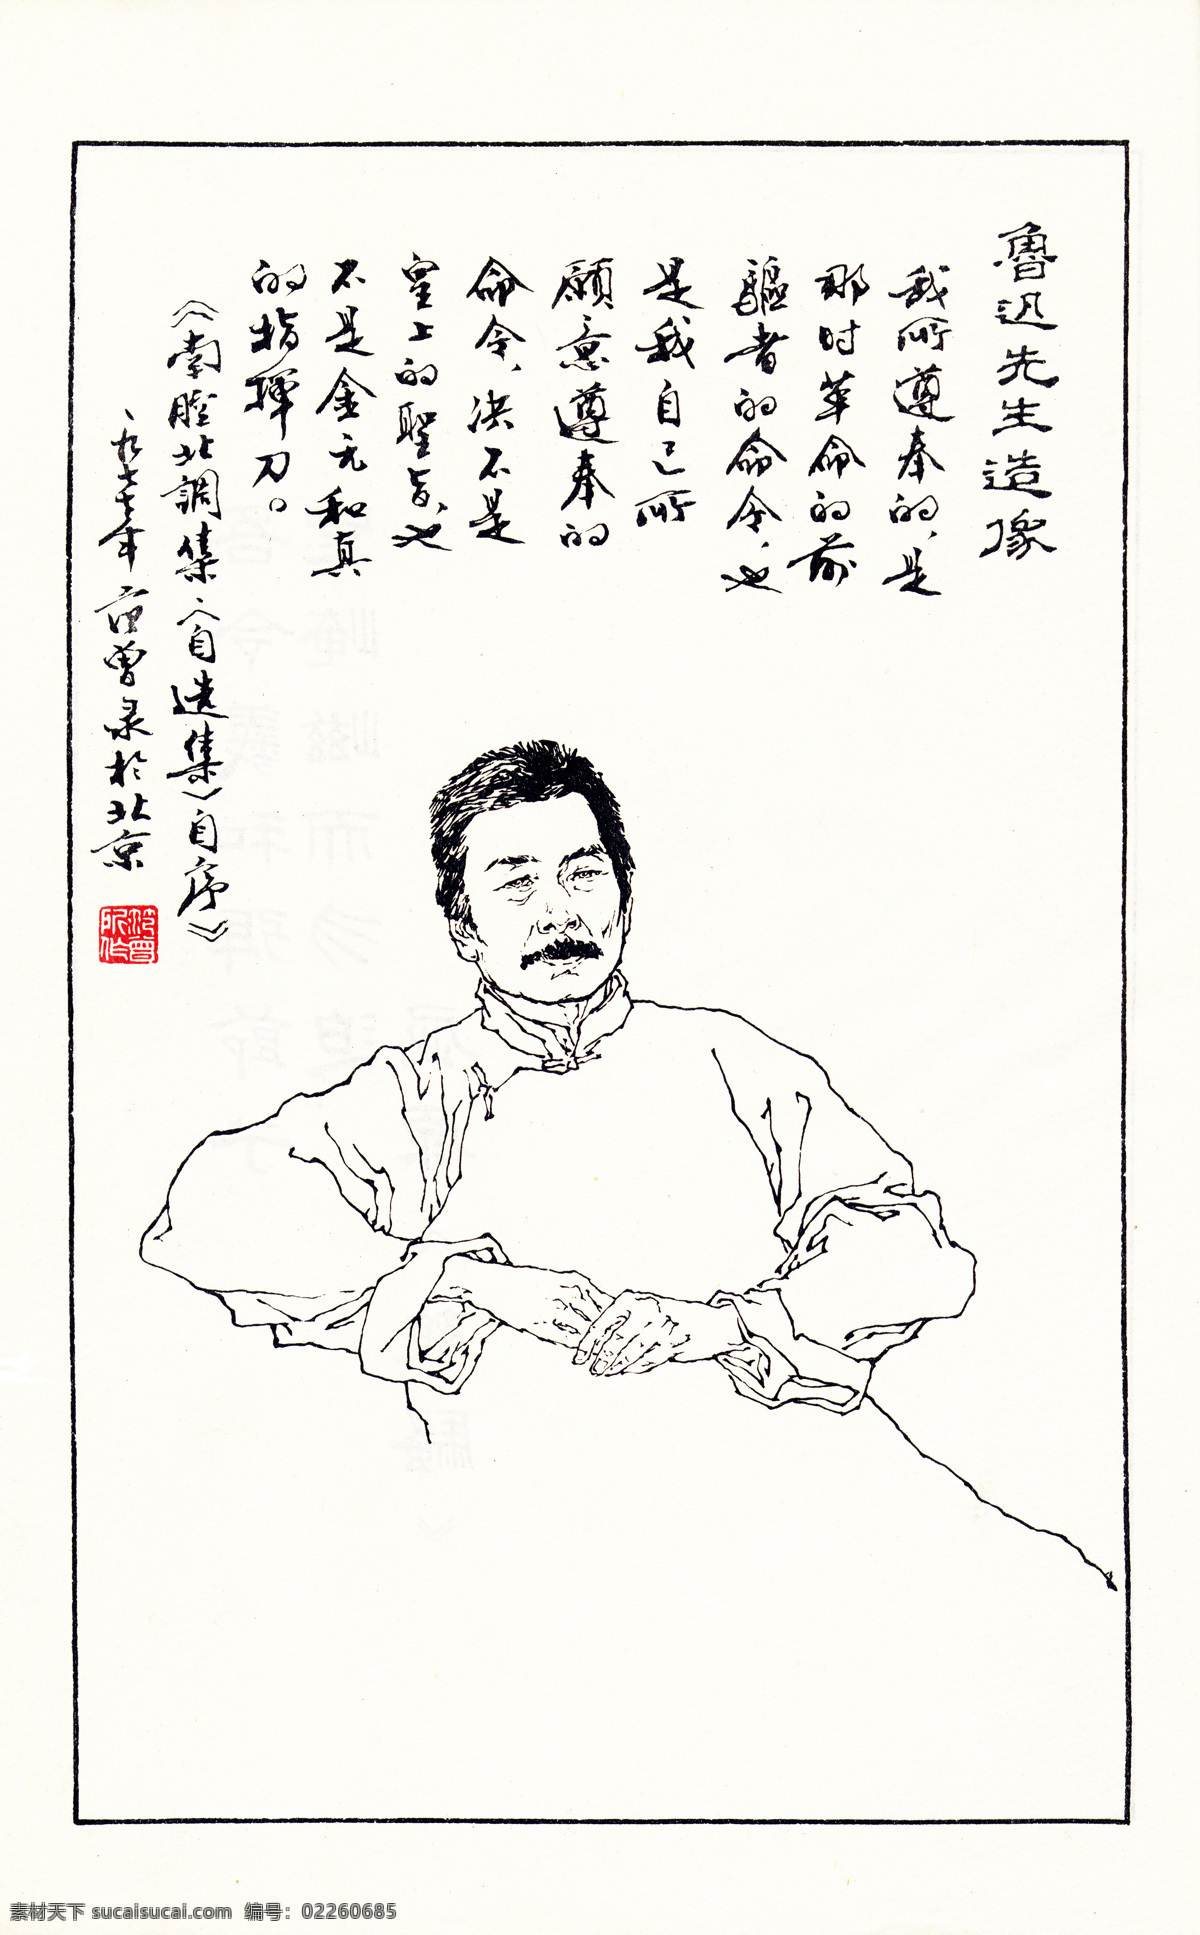 魯迅先生造像
我所遵奉的，是
那时革命的前
驅者的命令，也
是我自己所
願意遵奉的
命令，决不是
皇上的聖旨，也
不是金元和真
的指揮刀。
《南腔北調集〈自选集〉自序》
一九七七年 范曾录於北京
素材天下 sucaisucai.com 编号：02260685